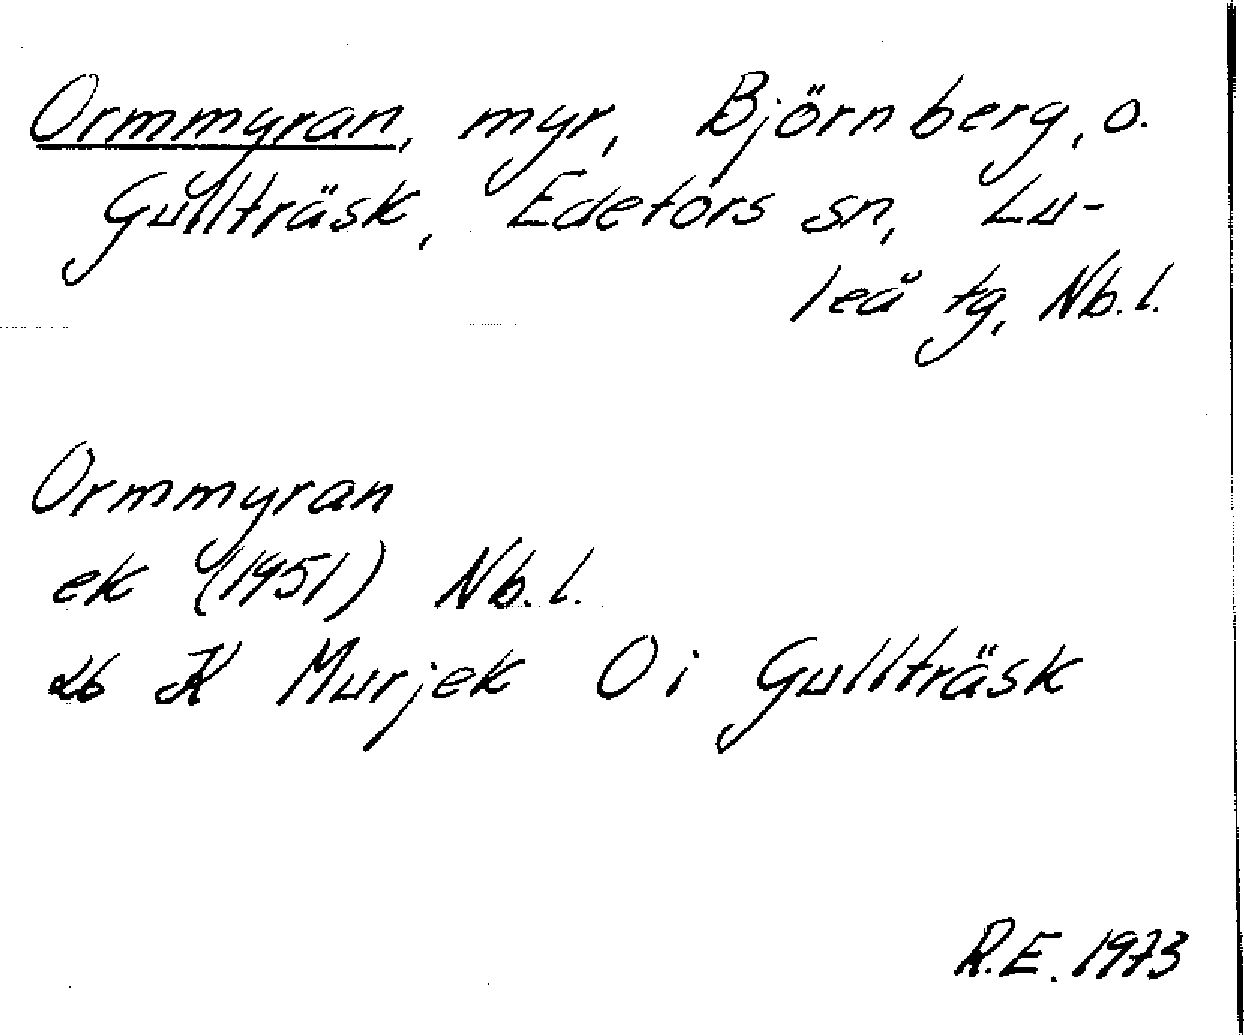 Ormmyran, myr, Björnberg, o.
Gullträsk, Edefors sn, Lu-
leå tg, Nb.l.
Ormmyran
ek (1951) Nb.l.
26 K Murjek O i Gullträsk
R.E. 1973